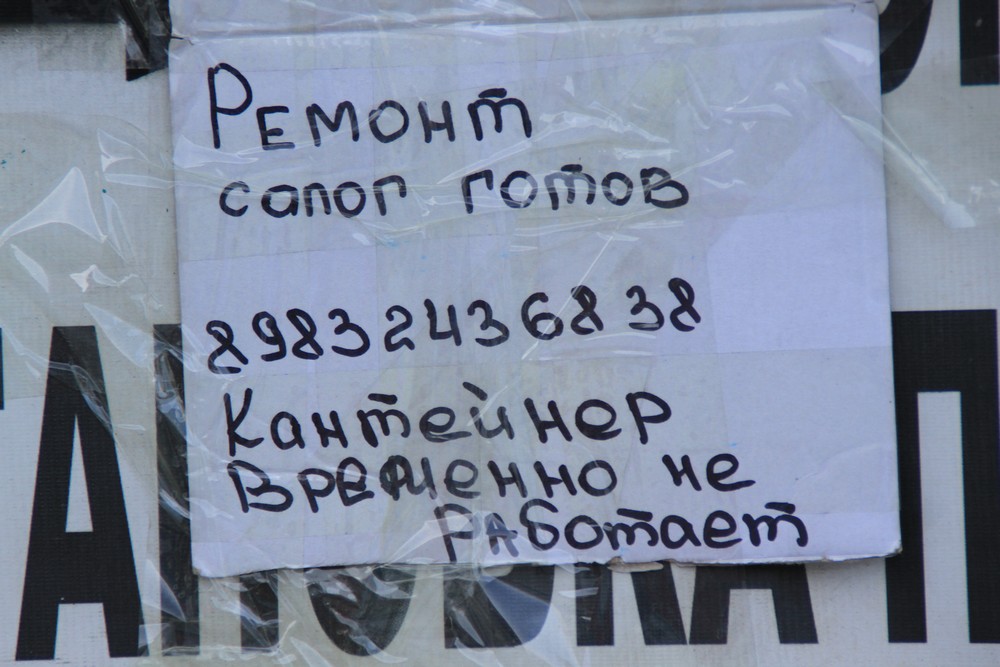 Ремонт
сапог готов
89832436838
Кантейнер
Временно не
Работает